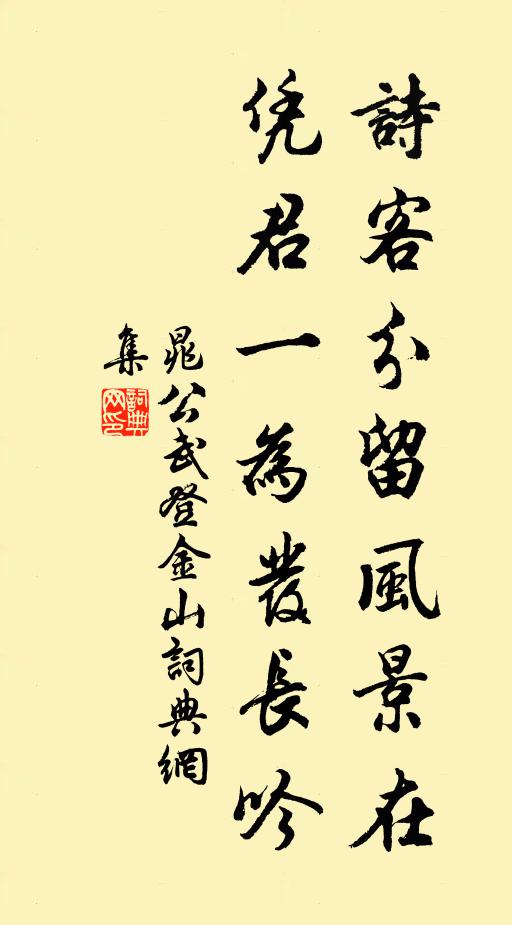 詩客分留風景在
凭君一為發長吟
晁公武登金山詞典網
集
詞典網印